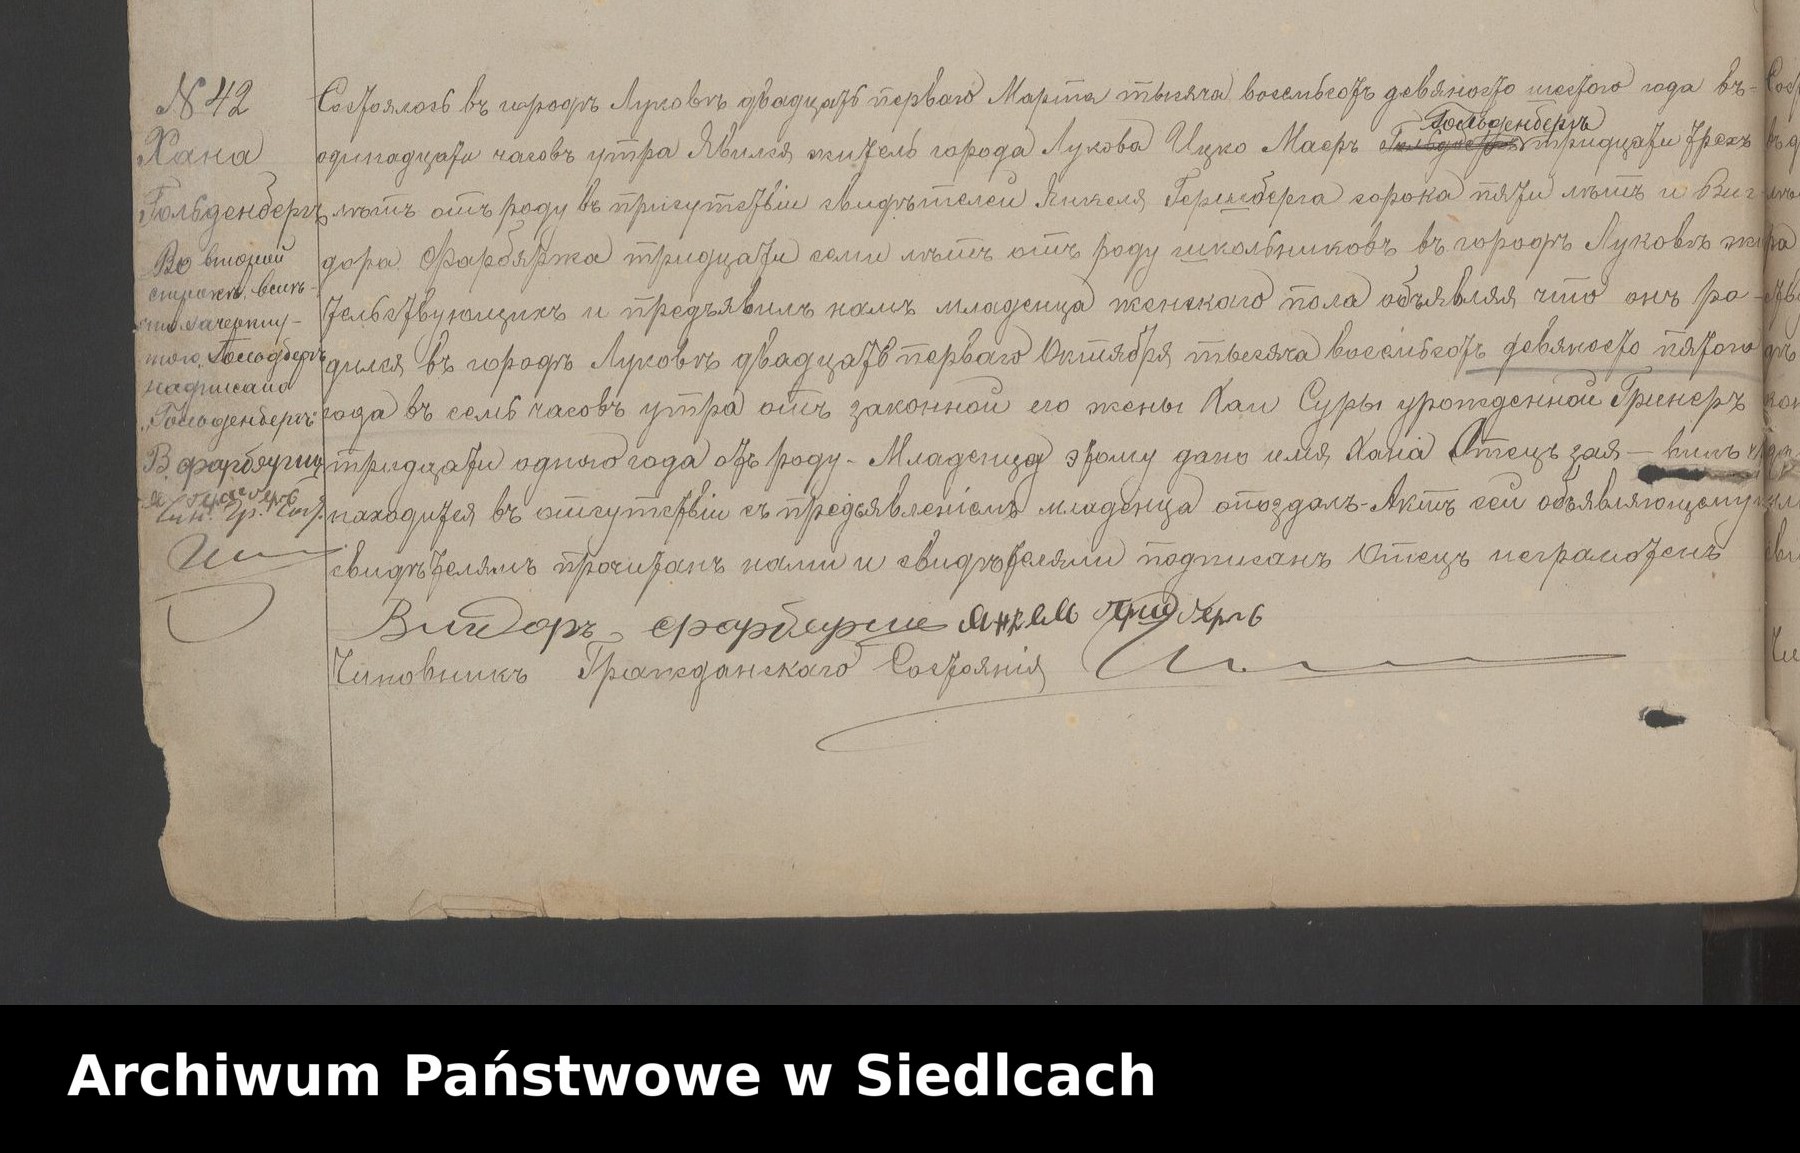 № 42
Хана
Гольденбергъ
Во второй
строкѣ вмѣ-
сто зачеркну-
того „Гольдберъ
надписано
„Гольденбергъ"
В. фарбяржъ
Чин. Гр. Сост.
Состоялось въ городѣ Луковѣ двадцать перваго Марта тысяча восемьсотъ девяносто шестого года въ-
одинадцати часовъ утра Явился житель города Лукова Ицко Маеръ Гольденбергъ тридцати трехъ
лѣтъ отъ роду въ присутствіи свидѣтелей Янкеля Гершберга сорока пяти лѣтъ и Виг-
дора Фарбяржа тридцати семи лѣтъ отъ роду школьниковъ въ городѣ Луковѣ жи
тельствующихъ и предъявилъ намъ младенца женскаго пола объявляя что онъ ро-
дился въ городѣ Луковѣ двадцать перваго Октября тысяча восемьсотъ девяносто пятого
года въ семь часовъ утра отъ законной его жены Хаи Суры урожденной Гринеръ
тридцати одного года отъ роду- Младенцу этому дано имя Хана Отецъ зая-вилъ
находится въ отсутствіи съ предъявленіемъ младенца опоздалъ- Актъ сей объявляющему и
свидѣтелямъ прочитанъ нами и свидѣтелями подписанъ Отецъ неграмотенъ
Вигдоръ фарбярже Янкель
Чиновникъ Гражданскаго Состоянія
Archiwum Państwowe w Siedlcach